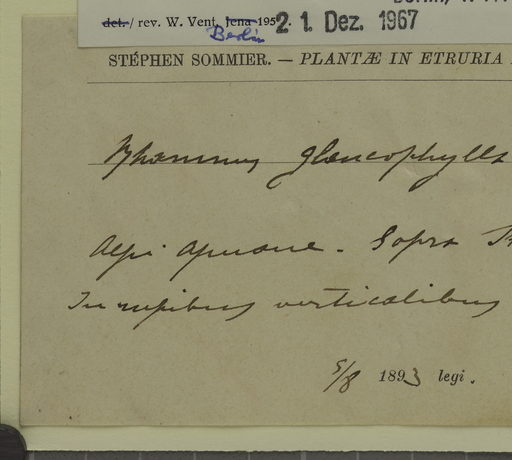 det. / rev. W. Vent, Jena 195 21. Dez. 1967
Berlin
STÉPHEN SOMMIER. — PLANTÆ IN ETRURIA
Rhamnus glaucophylla
Alpi Apuane - Sopra
In rupibus verticalibus
5/8 1893 legi.